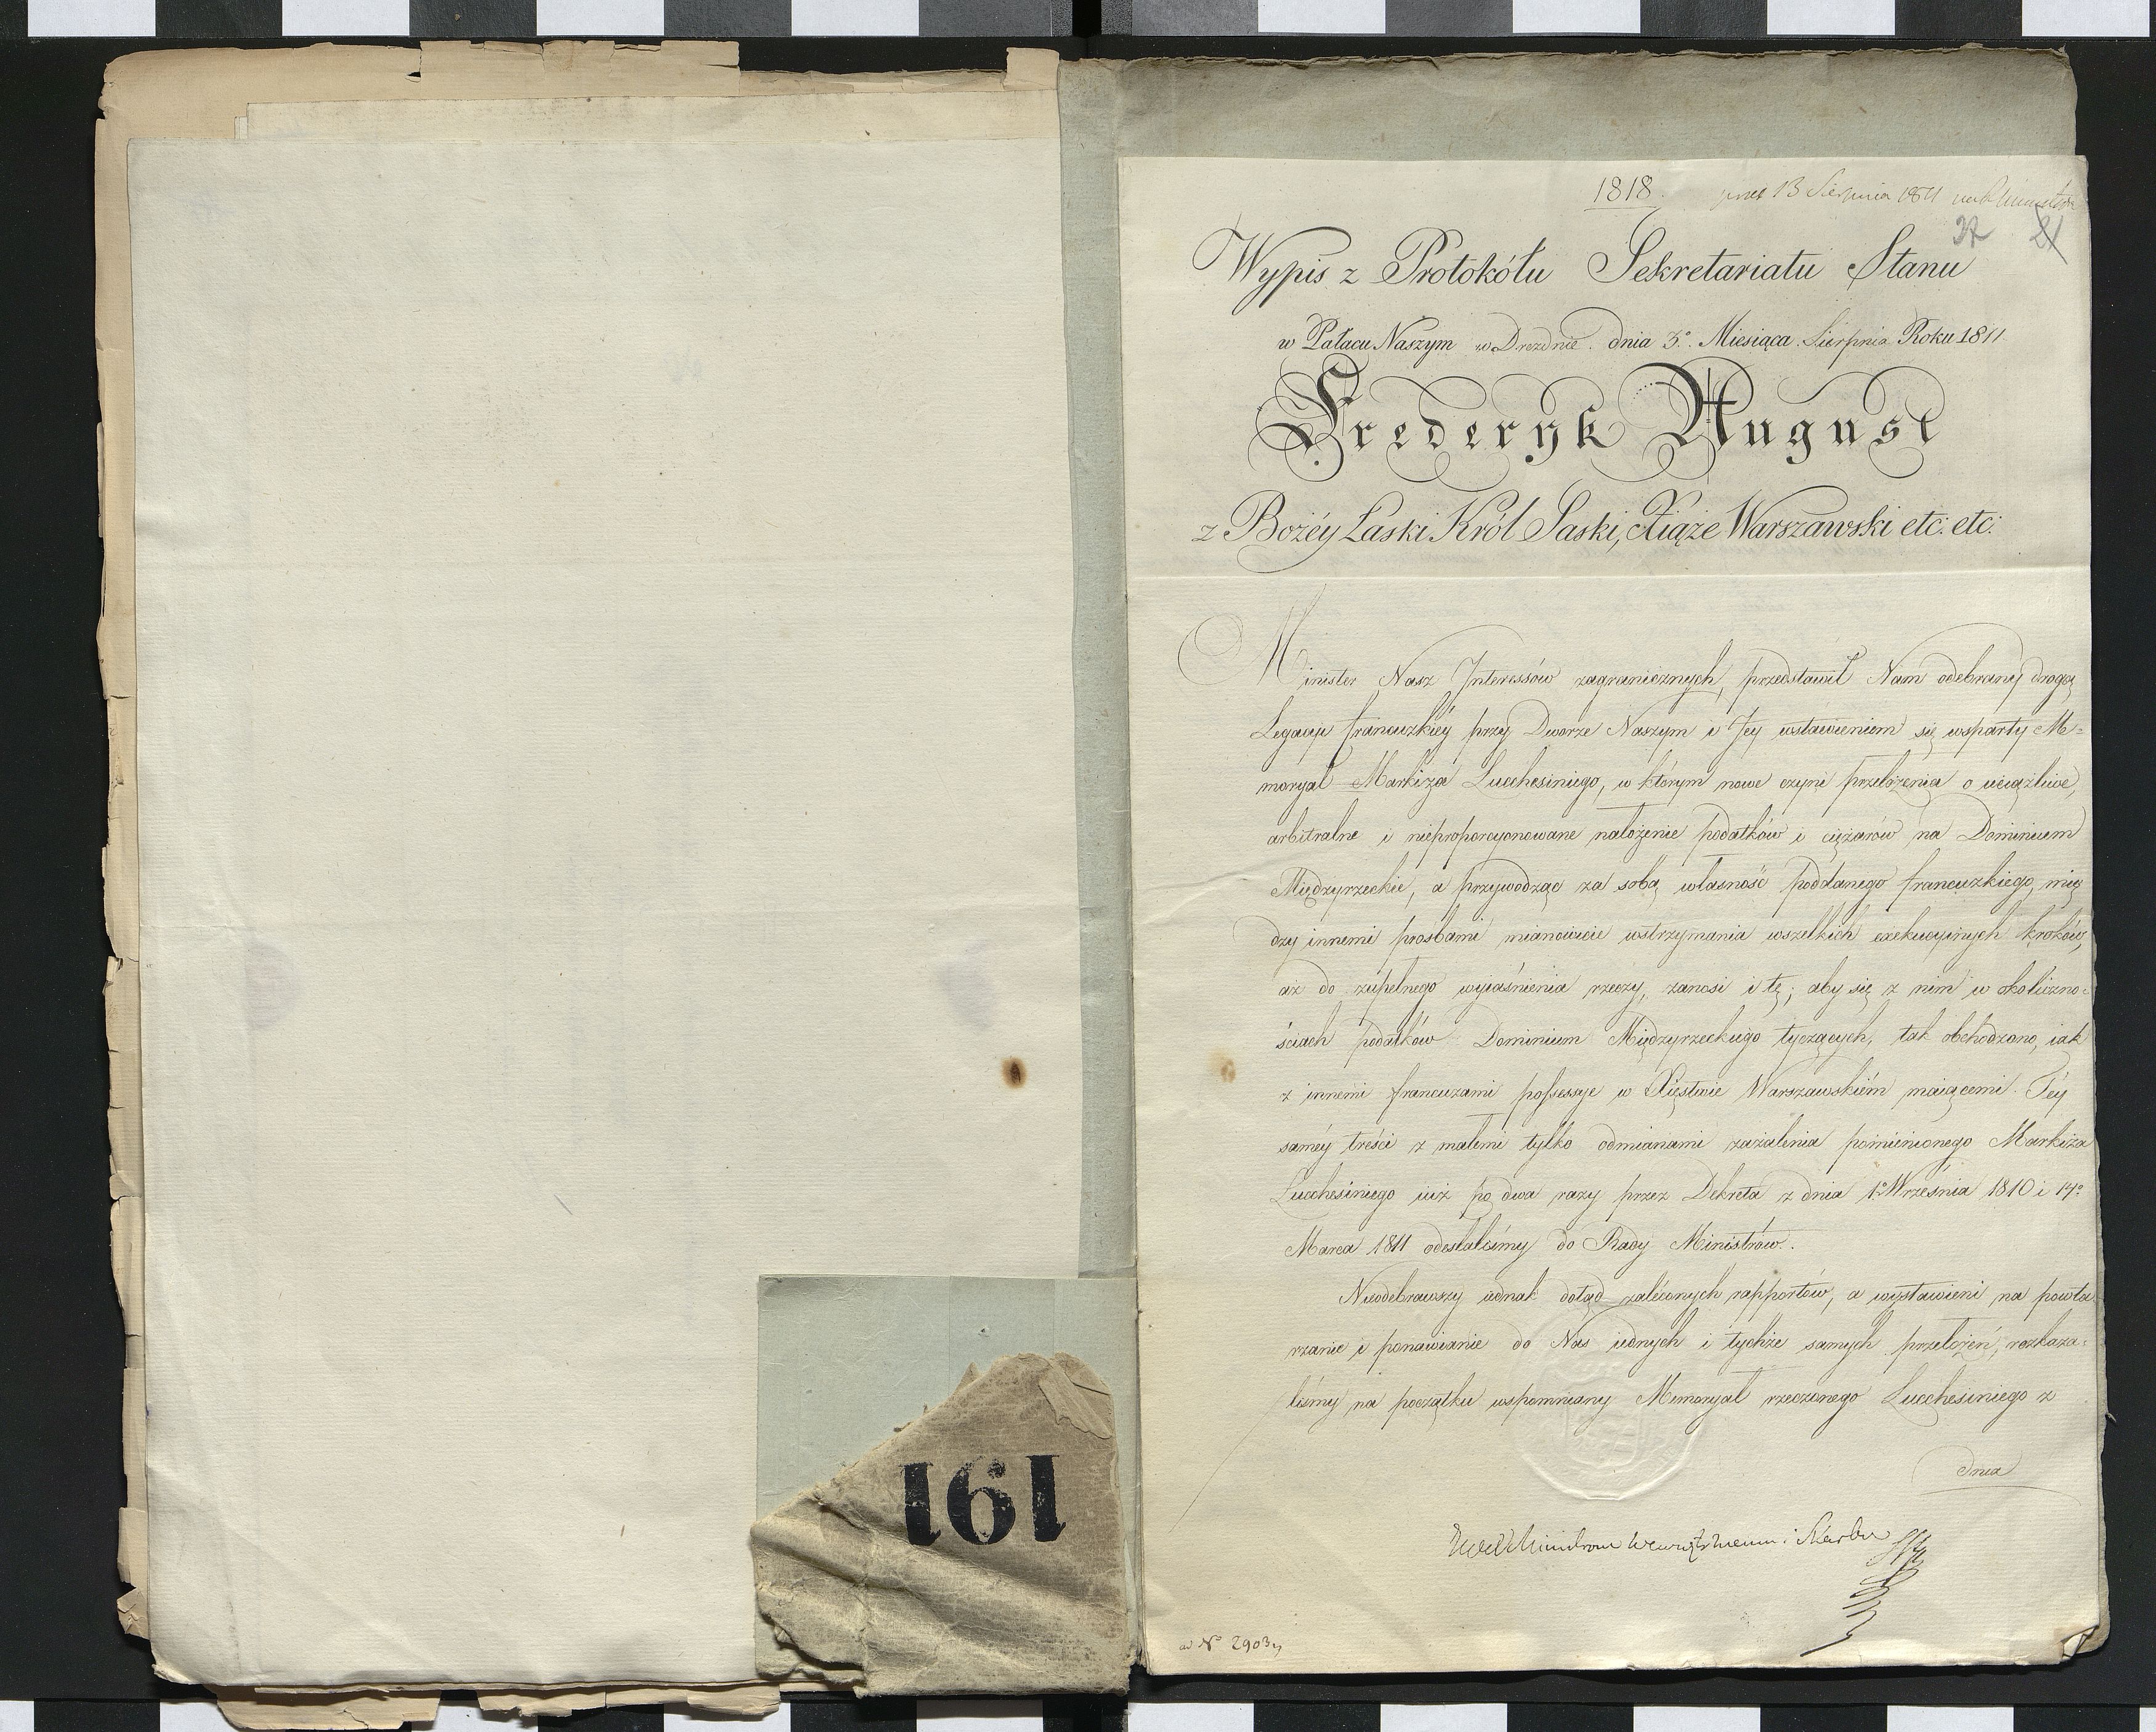 161
1818.
37 21
Wypis z Protokółu Sekretariatu Stanu
w Pałacu Naszym w Dreznie dnia 3º Miesiąca Sierpnia Roku 1811
Frederyk August
z Bożéy Łaski Król Saski, Xiąże Warszawski etc: etc:
Minister Nasz Interessów zagranicznych, przedstawił Nam odebrany drogą
Legacyi francuzkiéy przy Dworze Naszym i Jey wstawieniem się wsparty Me=
moryał Markiza Lucchesiniego, w którym nowe czyni przełożenia o uciążliwe,
arbitralne i nieproporcyonowane nałożenie podatków i ciężarów na Dominium
Międzyrzeckie, a przywodząc za sobą własność poddanego francuzkiego, mię
dzy innemi prosbami mianowicie wstrzymania wszelkich exekucyinych kroków,
aż do zupełnego wyiaśnienia rzeczy, zanosi i tę; aby się z nim w okoliczno=
ściach podatków Dominium Międzyrzeckiego tyczących, tak obchodzono, iak
z innemi francuzami possessye w Xięstwie Warszawskiém maiącemi. Téy
saméy treści z małemi tylko odmianami zażalenia pomienionego Markiza
Lucchesiniego iuż po dwa razy przez Dekreta z dnia 1º Września 1810 i 14º
Marca 1811 odesłaliśmy do Rady Ministrów.
Nieodebrawszy iednak dotąd zaleconych rapportów, a wystawieni na powta=
rzanie i ponawianie do Nas iednych i tychże samych przełożeń, rozkaza=
liśmy na początku wspomniany Memoryał rzeczonego Lucchesiniego z
dnia
i Skarbu
ad Nº 2903